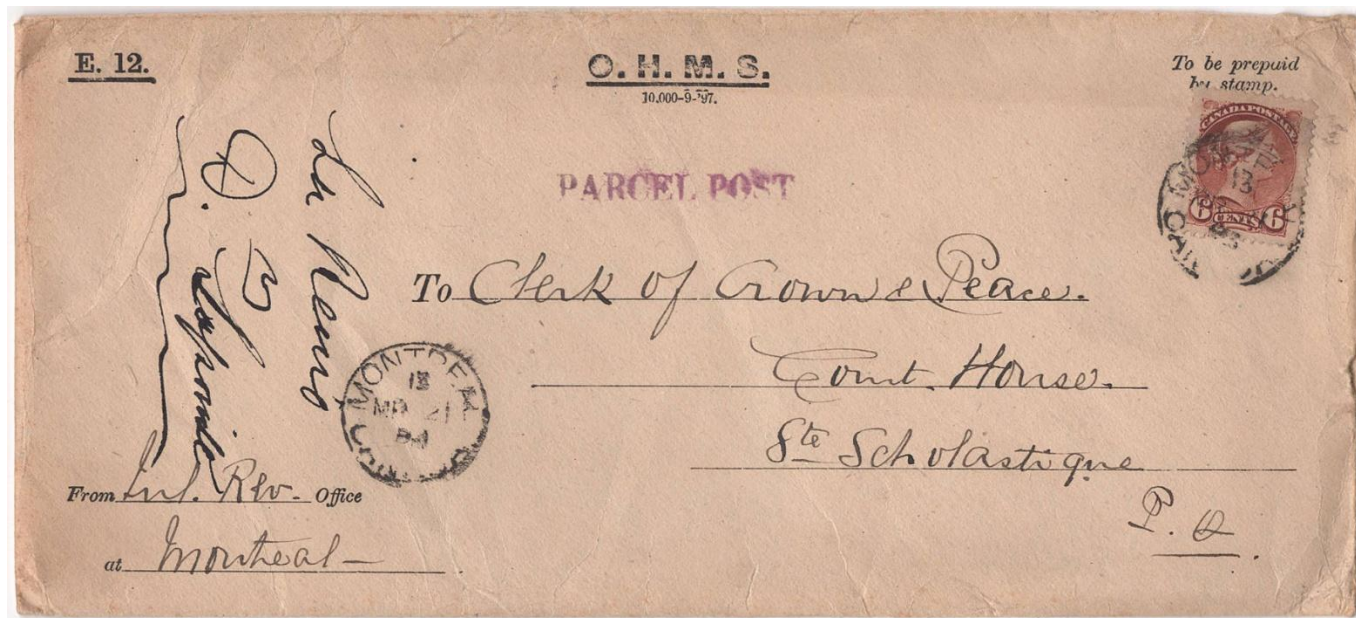 E. 12.
O. H. M. S.
10.000-9-'97.
To be prepaid
by stamp.
CANADA POSTAGE
6 CENTS 6
MONTREAL
13
PARCEL POST
To Clerk of Crown & Peace.
Court. House.
Ste Scholastique
P. Q.
MONTREAL
13
MR 21
From Inl. Rev. Office
at Montreal